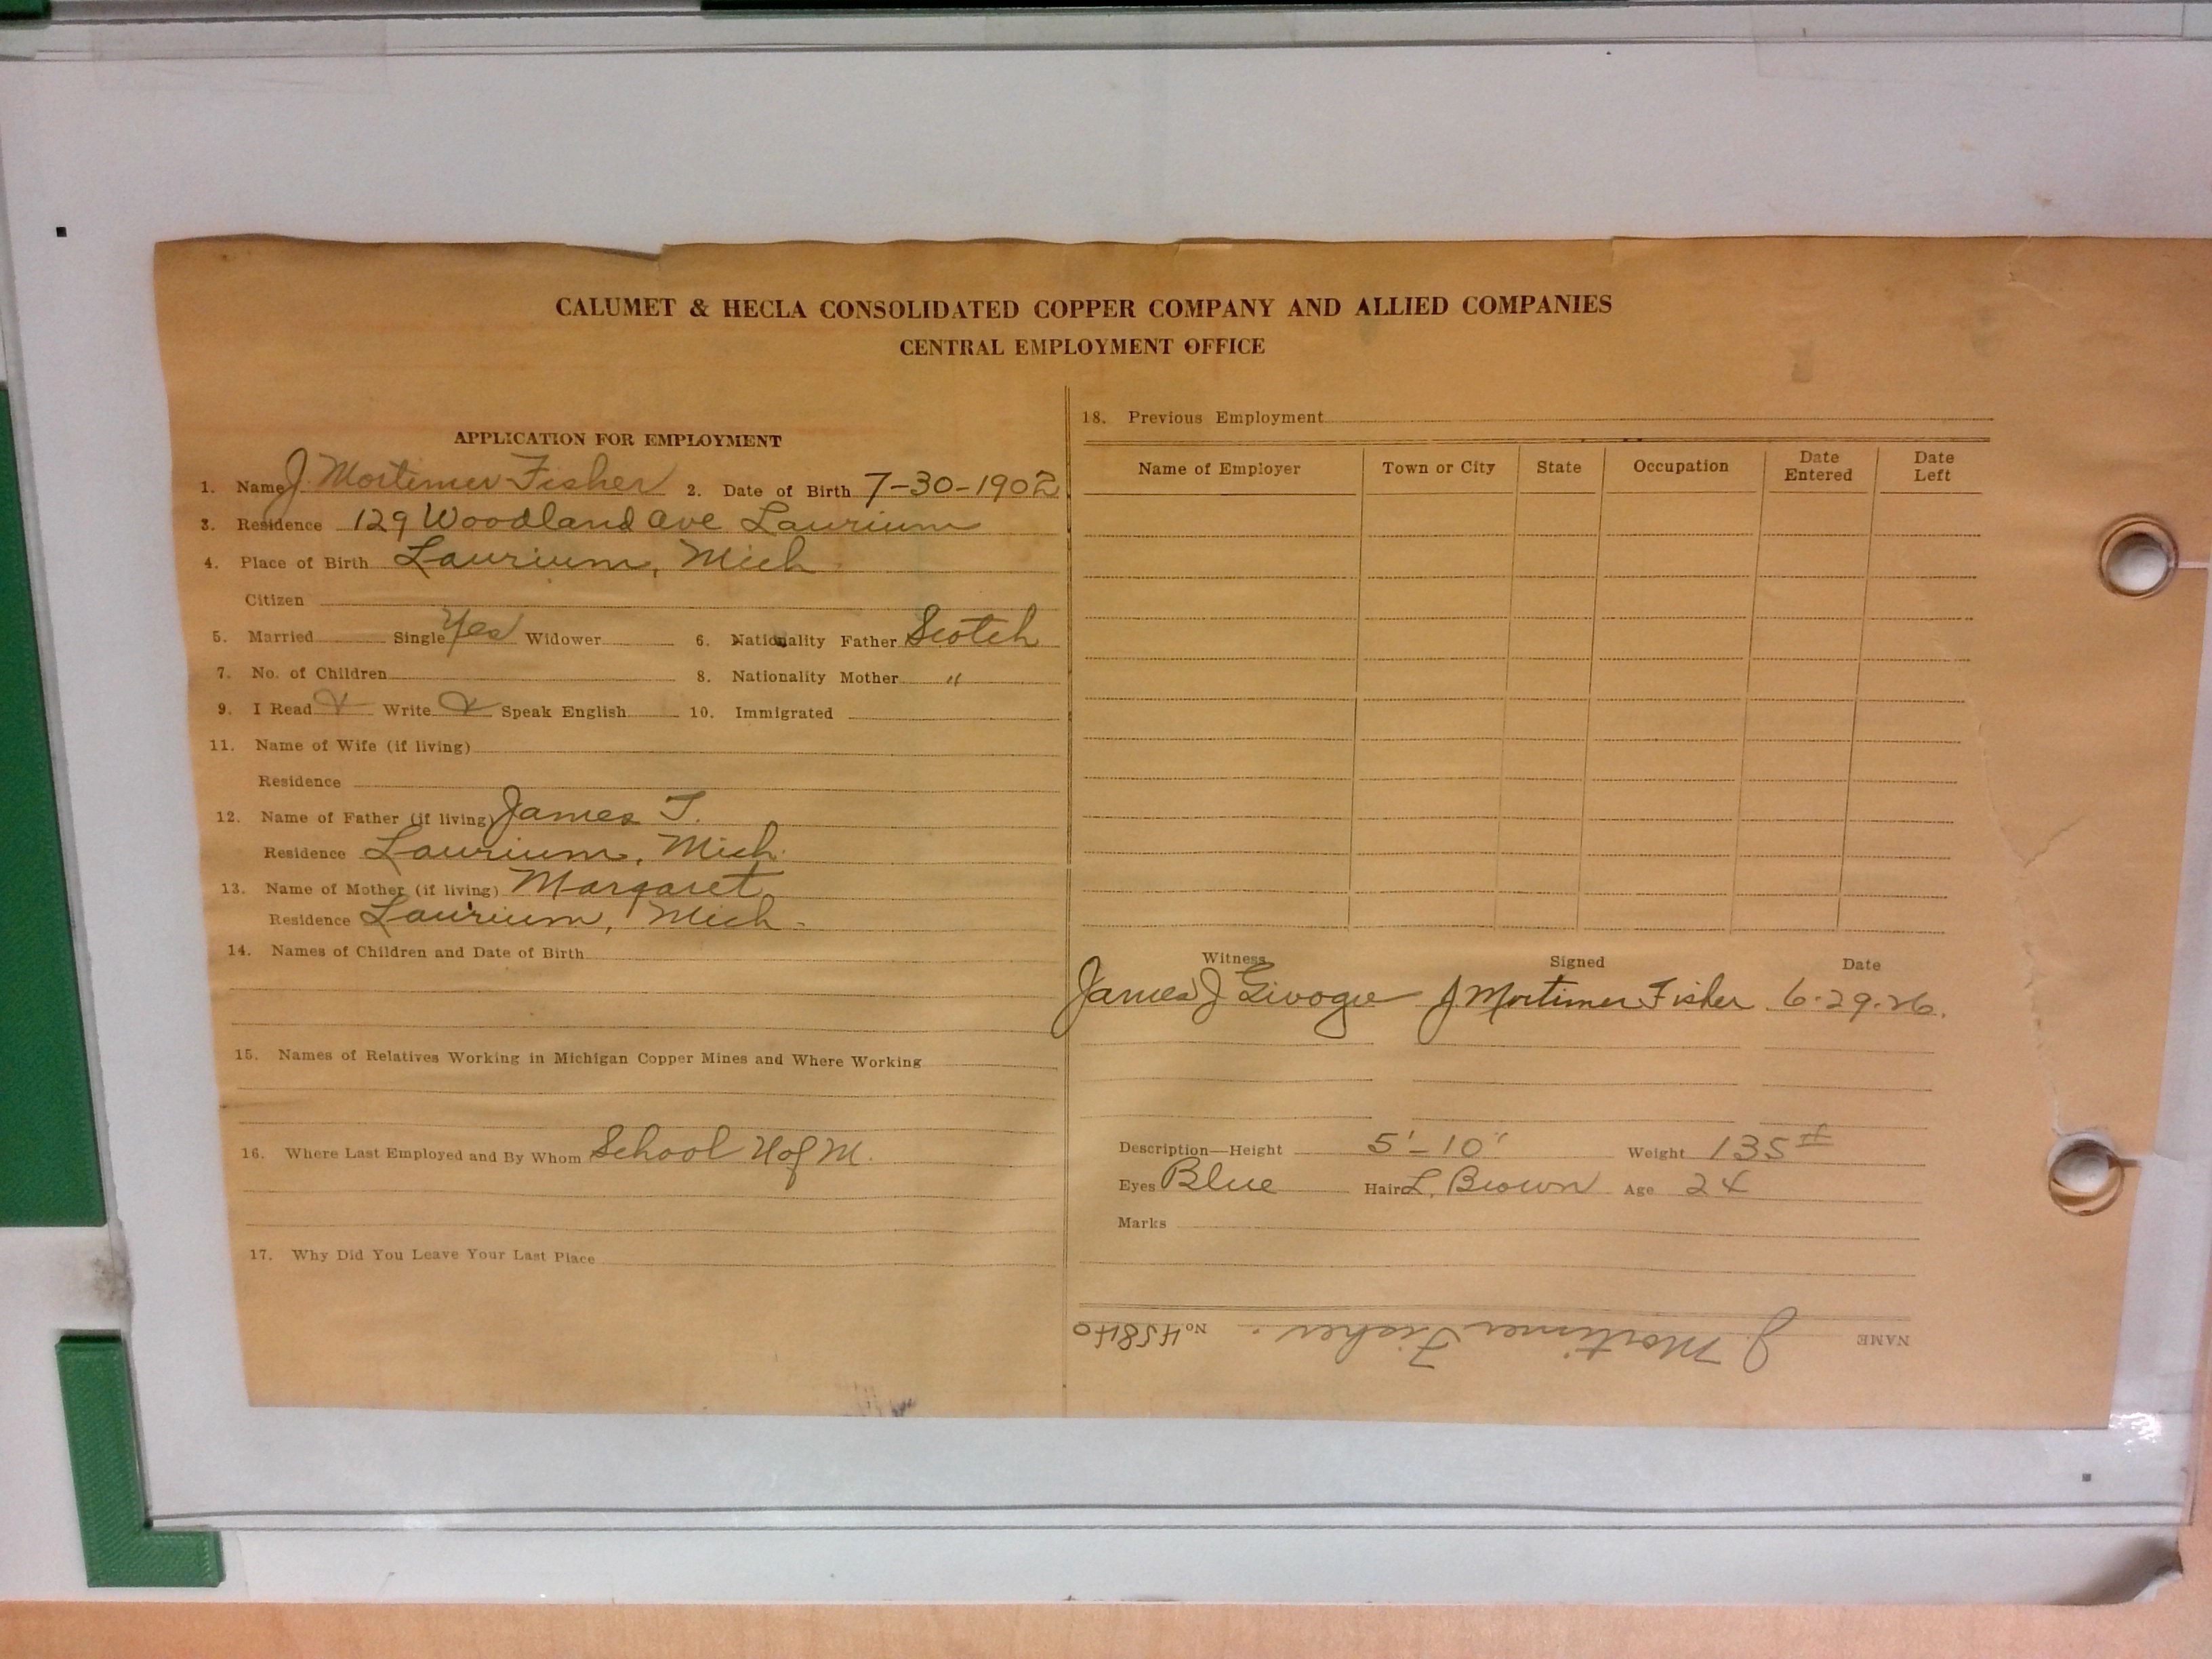 CALUMET & HECLA CONSOLIDATED COPPER COMPANY AND ALLIED COMPANIES
CENTRAL EMPLOYMENT OFFICE
APPLICATION FOR EMPLOYMENT
1. Name J. Mortimer Fisher 2. Date of Birth 7-30-1902
3. Residence 129 Woodland Ave Laurium
4. Place of Birth Laurium, Mich
Citizen
5. Married Single Yes Widower 6. Nationality Father Scotch
7. No. of Children 8. Nationality Mother "
9. I Read Write Speak English 10. Immigrated
11. Name of Wife (if living)
Residence
12. Name of Father (if living) James T.
Residence Laurium, Mich.
13. Name of Mother (if living) Margaret
Residence Laurium, Mich.
14. Names of Children and Date of Birth
15. Names of Relatives Working in Michigan Copper Mines and Where Working
16. Where Last Employed and By Whom School U of M.
17. Why Did You Leave Your Last Place
18. Previous Employment
Name of Employer Town or City State Occupation Date Entered Date Left
Witness Signed Date
James J J Mortimer Fisher 6-29-26.
Description—Height 5'-10" Weight 135 #
Eyes Blue Hair L. Brown Age 24
Marks
NAME J. Mortimer Fisher. No. 45840